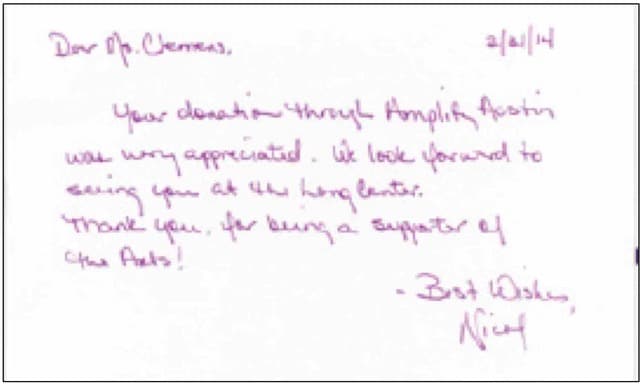 Dear Ms. Clemens, 2/21/14
Your donation through Amplify Austin
was very appreciated. We look forward to
seeing you at the Long Center.
Thank you, for being a supporter of
the Arts!
- Best Wishes,